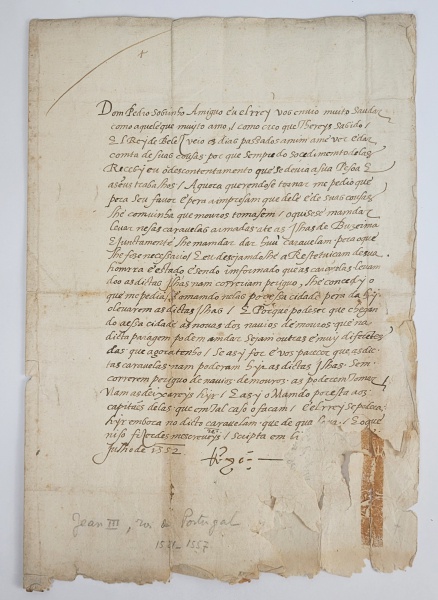 Dom Pedro sobrinho Amiguo eu elRey vos envio muito saudar
como aquele que muyto amo, como creo que thereys sabido
ElRey de Belez veio es dias passados a mim a me ver e dar
comta de suas cousas por que sempre do socedimento delas
Recebi eu o descontentamento que se devia a sua Pesoa
a seus trabalhos / Aguora querendose tornar me pedio que
pera seu favor e pera a impresam que dele e de suas cousas
lhe comvinha que mouros tomasem / o quisese mandar
levar nesas caravelas armadas ate as Ilhas de
E juntamente lhe mamdar dar huu caravelam pera o que
lhe fose necessario / E eu desejando lhe a Restetuicam de sua
homrra e estado e sendo informado que as caravelas levam
do as dictas Ilhas nam correriam periguo, lhe concedy o
que me pedia, tomando nelas por esa cidade pera da hy
o levarem as dictas Ilhas / E Porque podese ser que chegan
do a esa cidade as novas dos navios de mouros que na
dicta paragem podem amdar sejam outras e muy diferentes
das que agora tenho / se asy for e vos parecer que as dic
tas caravelas nam poderam hyr as dictas Ilhas sem
correrem periguo de navios de mouros
as dexareys hyr / E asy o Mamdo por esta aos
capitães delas que em tal caso o facam / e elRey
hyr embora no dicto caravelam que de qua / E do que
niso fizerdes me screvereys / scripta em
Julho de 1552
Rey
Jean III, roi de Portugal
1521-1557